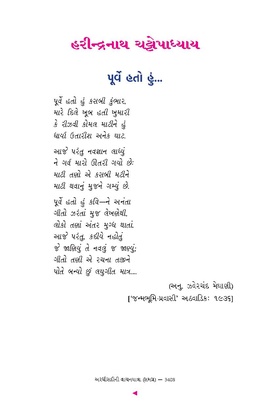 હરીન્દ્રનાથ ચટ્ટોપાધ્યાય
પૂર્વે હતો હું...
પૂર્વે હતો હું કસબી કુંભાર,
મારે દિલે ખૂબ હતી ખુમારી
કે રીઝવી કોમલ માટીને હું
ધાર્યા ઉતારીશ અનેક ઘાટ.
આજે પરંતુ નવજ્ઞાન લાધ્યું
ને ગર્વ મારો ઊતરી ગયો છેઃ
માટી તણો એ કસબી મટીને
માટી થવાનું મુજને ગમ્યું છે.
પૂર્વે હતો હું કવિ—ને અનંતા
ગીતો ઝરંતાં મુજ લેખણેથી;
લોકો તણાં અંતર મુગ્ધ થાતાં.
આજે પરંતુ, કદીયે નહોતું
જે જાણિયું તે નવલું જ જાણ્યું:
ગીતો તણી એ રચના તજીને
પોતે બન્યો છું લઘુગીત માત્ર....
(અનુ. ઝવેરચંદ મેઘાણી)
['જન્મભૂમિ-પ્રવાસી' અઠવાડિક: ૧૯૩૬]